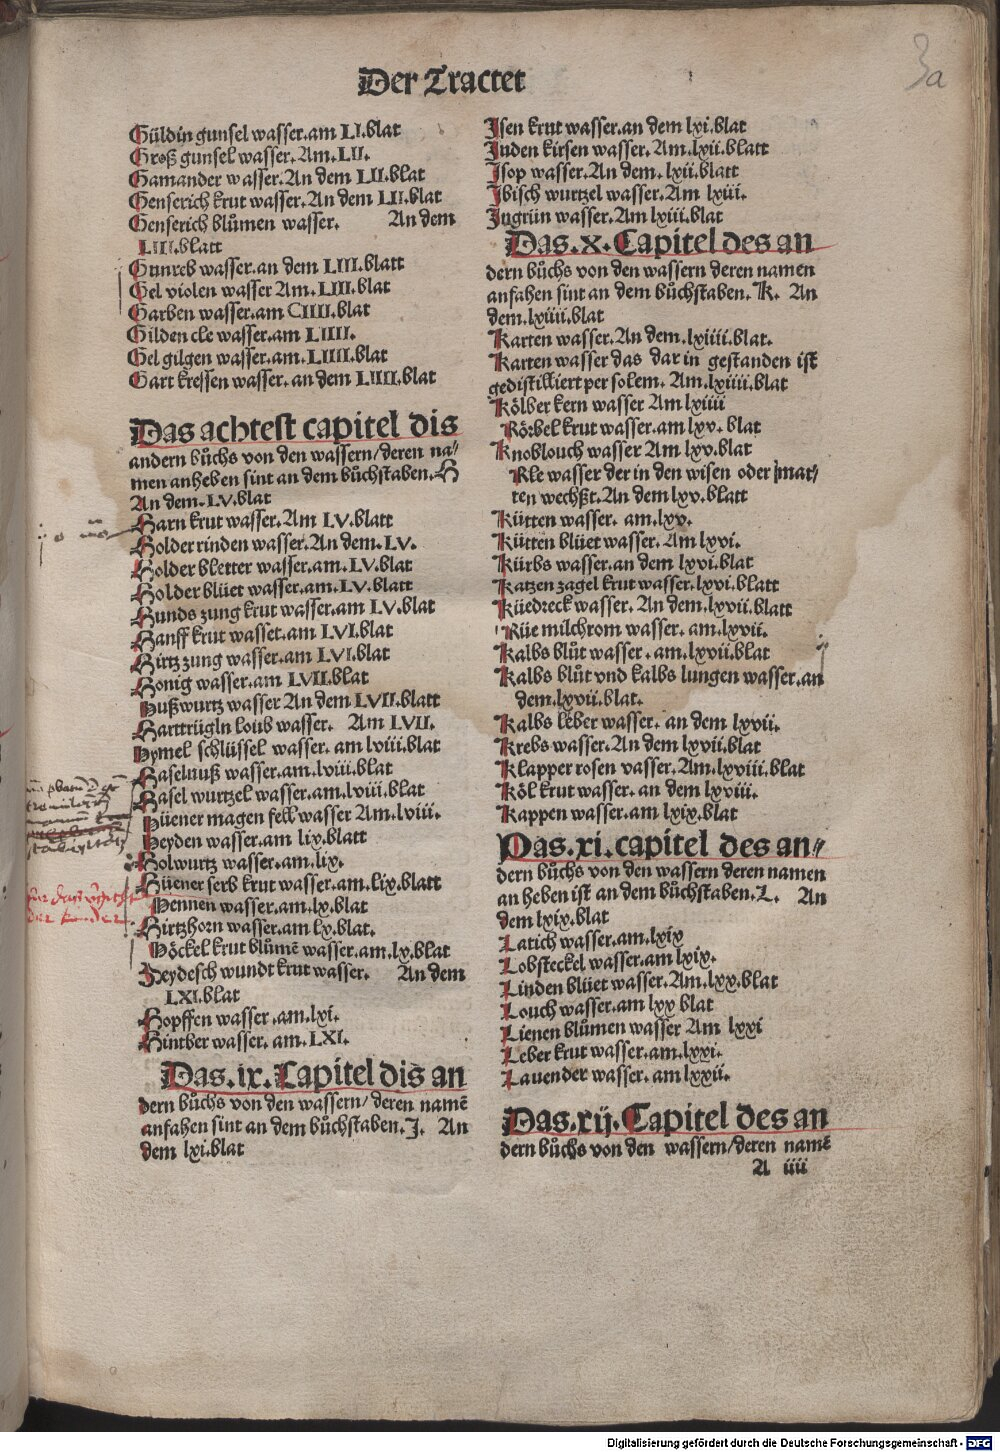 3a
Der Tractet
Güldin gunsel wasser.am LI.blat
Groß gunsel wasser. Am.LII.
Gamander wasser.An dem LII.blat
Genserich krut wasser.An dem LII.blat
Genserich blůmen wasser. An dem
LIII.blatt
Gunreb wasser.an dem LIII.blatt
Gel violen wasser Am.LIII.blat
Garben wasser.am CIIII.blat
Gilden cle wasser.am LIIII.
Gel gilgen wasser.am.LIIII.blat
Gart kressen wasser.an dem LIIII.blat
Das achtest capitel dis
andern bůchs von den wassern/deren na⸗
men anheben sint an dem bůchstaben.H
An dem.LV.blat
Harn krut wasser.Am LV.blatt
Holder rinden wasser.An dem.LV.
Holder bletter wasser.am.LV.blat
Holder blüet wasser.am.LV.blatt
Hunds zung krut wasser.am LV.blat
Hanff krut wasset.am LVI.blat
Hirtz zung wasser.am LVI.blat
Honig wasser.am LVII.blat
Hußwurtz wasser An dem LVII.blatt
Harttrügln loub wasser. Am LVII.
Hymel schlüssel wasser. am lviii.blat
Haselnuß wasser.am.lviii.blat
Hasel wurtzel wasser.am.lviii.blat
Hüener magen fell wasser Am.lviii.
Heyden wasser.am lix.blatt
Holwurtz wasser.am.lix.
Hüener serb krut wasser.am.lix.blatt
Hennen wasser.am.lx.blat
Hirtzhorn wasser.am lx.blat.
Höckel krut blůmē wasser.am.lx.blat
Heydesch wundt krut wasser. An dem
LXI.blat
Hopffen wasser.am.lxi.
Hintber wasser. am.LXI.
Das.ix.Capitel dis an
dern bůchs von den wassern/ deren namē
anfahen sint an dem bůchstaben.J. An
dem lxi.blat
Isen krut wasser.an dem lxi.blat
Juden kirsen wasser. Am.lxii.blatt
Isop wasser.An dem.lxii.blatt
Ibisch wurtzel wasser.Am lxiii.
Ingrün wasser.Am lxiii.blat
Das.x.Capitel des an
dern bůchs von den wassern deren namen
anfahen sint an dem bůchstaben.K. An
dem.lxiiii.blat
Karten wasser.An dem.lxiiii.blat.
Karten wasser das dar in gestanden ist
gedistilliert per solem. Am.lxiiii.blat
Kölber kern wasser Am lxiiii
Körbel krut wasser.am lxv. blat
Knoblouch wasser Am lxv.blat
Kle wasser der in den wisen oder mat⸗
ten wechßt.An dem lxv.blatt
Kütten wasser. am.lxv.
Kütten blüet wasser. Am lxvi.
Kürbs wasser.an dem lxvi.blat
Katzen zagel krut wasser.lxvi.blatt
Küedreck wasser. An dem.lxvii.blatt
Küe milchrom wasser. am.lxvii.
Kalbs blůt wasser.am.lxvii.blat
Kalbs blůt vnd kalbs lungen wasser.an
dem.lxvii.blat.
Kalbs leber wasser. an dem lxvii.
Krebs wasser.An dem lxvii.blat
Klapper rosen vasser.Am.lxviii.blat
Köl krut wasser. an dem lxviii.
Kappen wasser.am lxix.blat
Das.xi.capitel des an⸗
dern bůchs von den wassern deren namen
an heben ist an dem bůchstaben.L. An
dem lxix.blat
Latich wasser.am.lxix
Lobsteckel wasser.am lxix.
Linden blüet wasser.Am.lxx.blat
Louch wasser.am lxx blat
Lienen blůmen wasser Am lxxi
Leber krut wasser.am.lxxi.
Lauender wasser.am lxxii.
Das.xij.Capitel des an
dern bůchs von den wassern/deren namē
A iiii
Digitalisierung gefördert durch die Deutsche Forschungsgemeinschaft - DFG